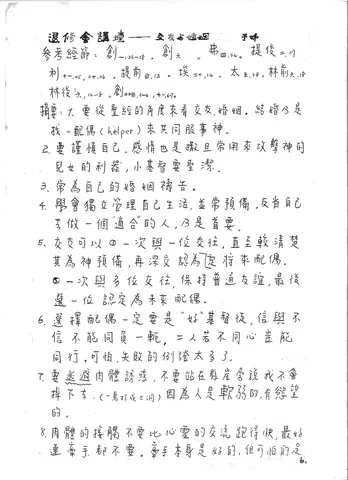 退修會講壇——交友与婚姻
參考經節：創一.26-28. 創六. 弗四.26. 提後二.19
林後六.14-8.
摘要：1. 要從聖經的角度來看交友、婚姻。結婚乃是
找一配偶(helper)來共同服事神。
2. 要謹慎自己，感情也是撒旦常用來攻擊神的
兒女的利器，小基督要聖潔。
3. 常為自己的婚姻禱告。
4. 學會獨立管理自己生活，並常預備，反省自己
去做一個"適合"的人，乃是首要.
5. 交友可以①一次與一位交往，直至較清楚
其為神預備，再深交認為定終來配偶。
②一次與多位交往，保持普通友誼，最後
選一位認定為未來配偶。
6. 選擇配偶一定要是"好"基督徒，信與不
信不能同負一軛，二人若不同心豈能
同行。可怕、失敗的例證太多了。
7. 要逃避肉體誘惑，不要站在懸崖旁說我不會
掉下去. 因為人是軟弱的，有慾望
的。
8. 肉體的接觸不要比心靈的交流跑得快，最好
連牽手都不要。牽手本身是好的，但可怕的是
6.